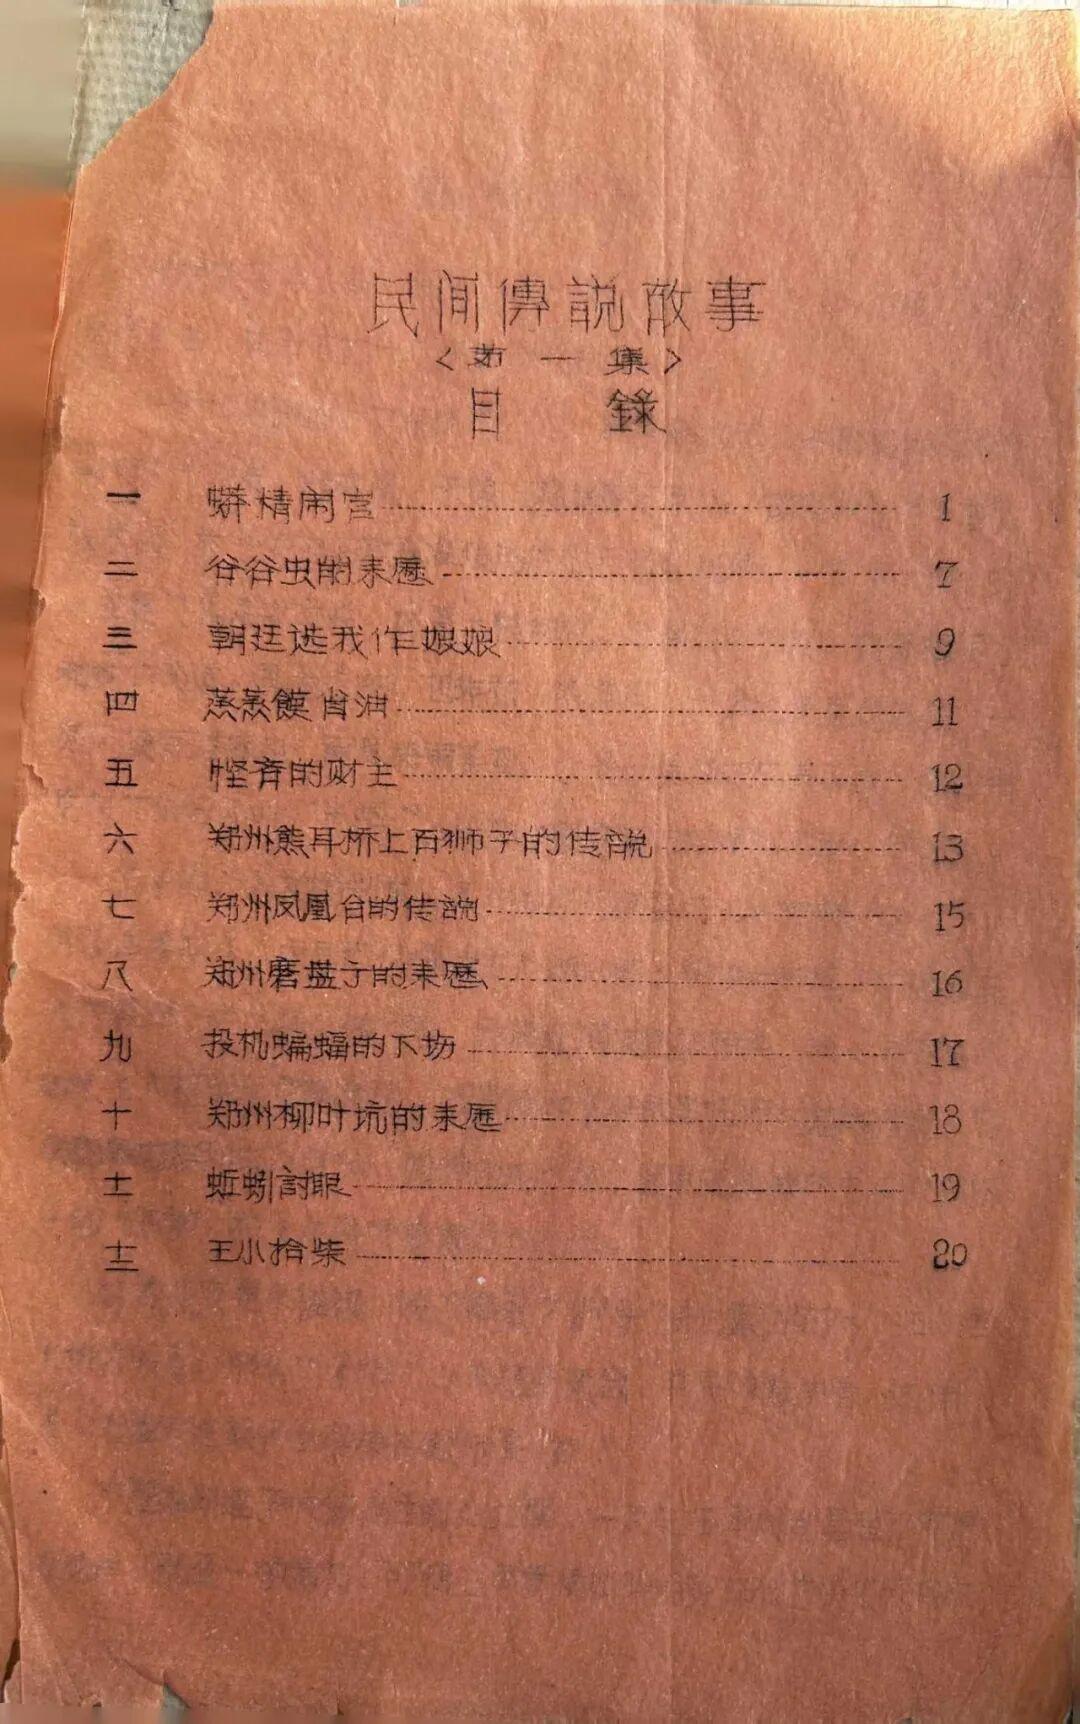 民间傳説故事
<第一集>
目 錄
一 蟒精闹宫 1
二 谷谷虫的来历 7
三 朝廷选我作娘娘 9
四 蒸蒸馍省油 11
五 悭吝的财主 12
六 郑州熊耳桥上石狮子的传説 13
七 郑州凤凰台的传説 15
八 郑州磨盘子的来历 16
九 投机蝙蝠的下场 17
十 郑州柳叶坑的来历 18
十一 蚯蚓討眼 19
十二 王小拾柴 20